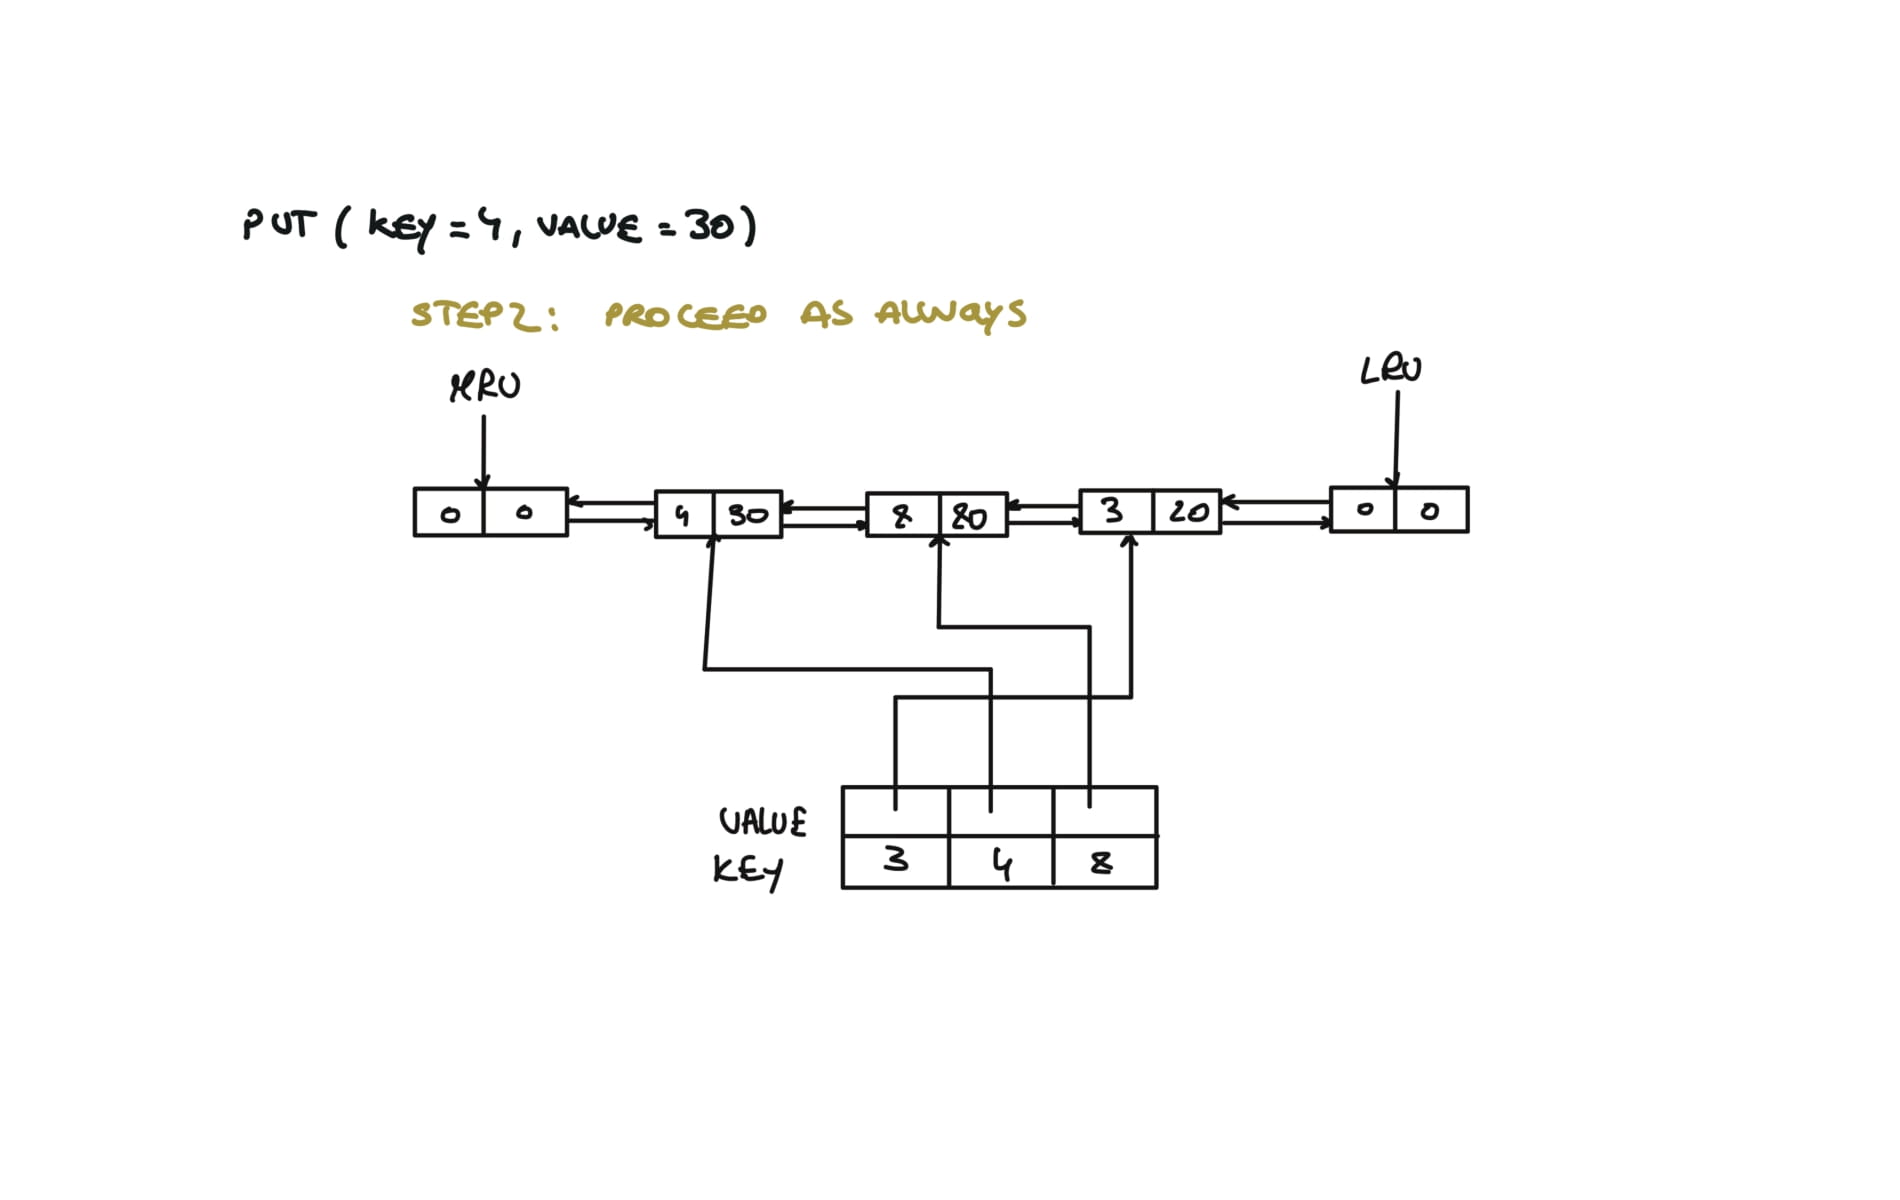 PUT ( KEY = 4, VALUE = 30)
STEP 2: PROCEED AS ALWAYS
MRU
LRU
0 0 4 30 8 80 3 20 0 0
VALUE
KEY 3 4 8